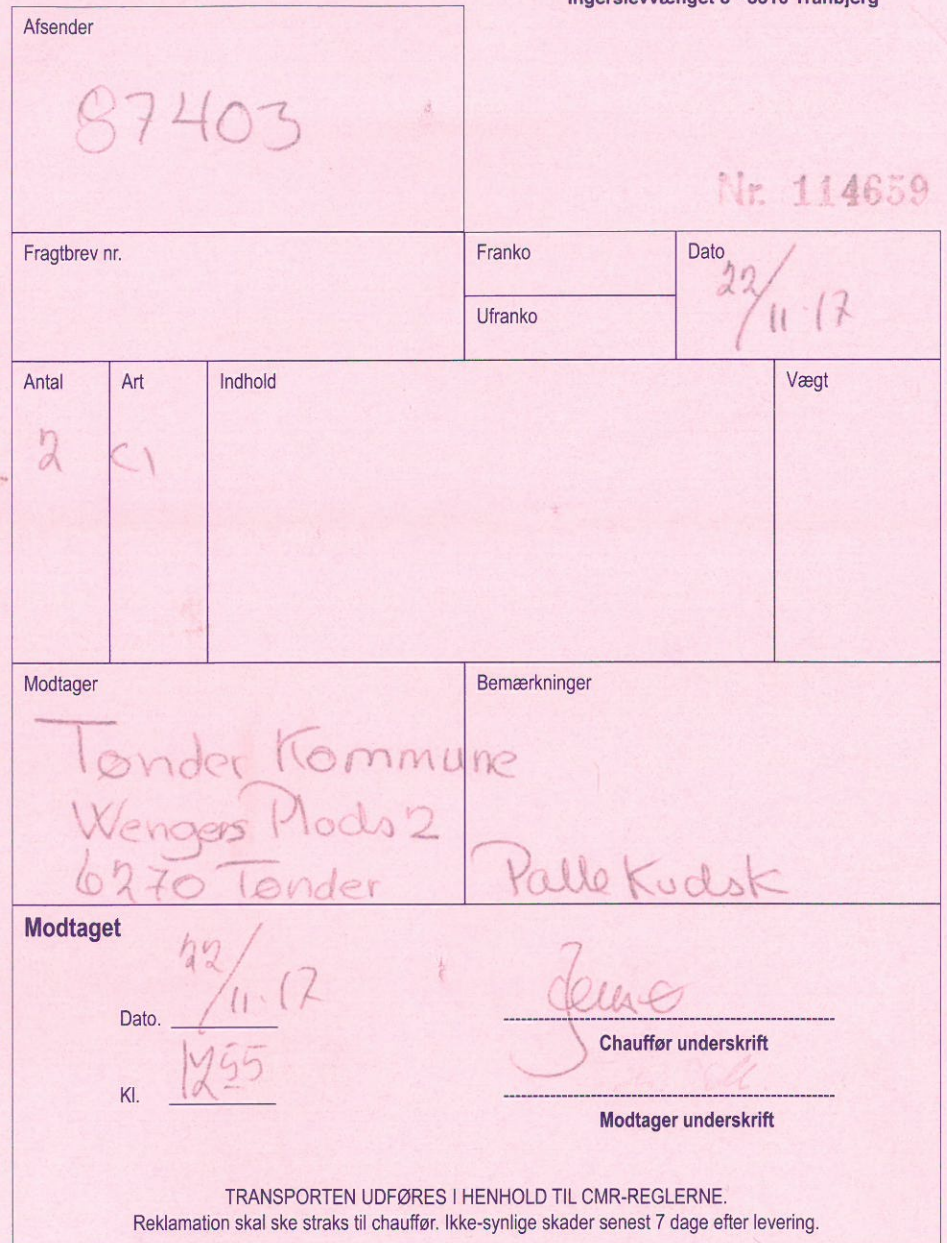 Afsender
87403
Nr. 114659
Fragtbrev nr.
Franko
Ufranko
Dato
22/11-17
Antal
Art
Indhold
Vægt
2
Modtager
Bemærkninger
Tønder Kommune
Wengers Plads 2
6270 Tønder
Palle Kudsk
Modtaget
Dato. 22/11-17
Chauffør underskrift
Kl.
Modtager underskrift
TRANSPORTEN UDFØRES I HENHOLD TIL CMR-REGLERNE.
Reklamation skal ske straks til chauffør. Ikke-synlige skader senest 7 dage efter levering.